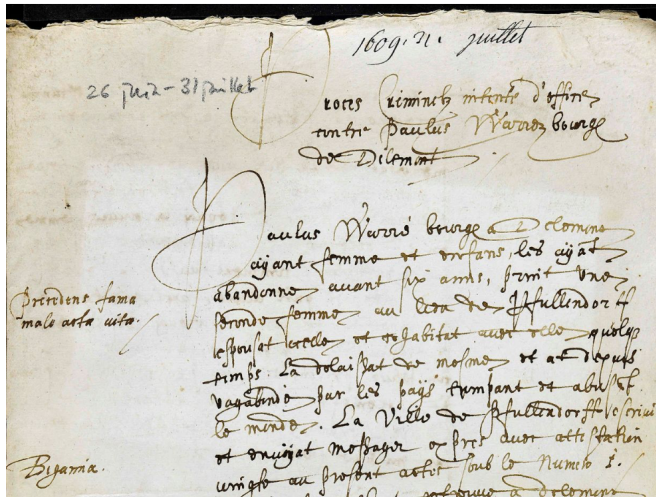 1609. 31. juillet
26 juin - 31 juillet
Proces Criminelz intenté d'office
contre Paulus Warrez bourge
de Delemont
Paulus Warré bourge a Delemont
ayant femme et enfans, les ayāt
abandonné avant six anns, print une
seconde femme au lieu de Pfullendorff
espousat icelle et cohabitat avec elle quelq
temps. La delaissat de mesme et at depuis
vagabundé par les pays trompant et abusāt
le monde. La Ville de Pfullendorff escrivi
et envoyat messager expres avec attestation
au present actes soub le Numero 1.
Precedens fama
malo acta vita.
Bigamia.
a delemont